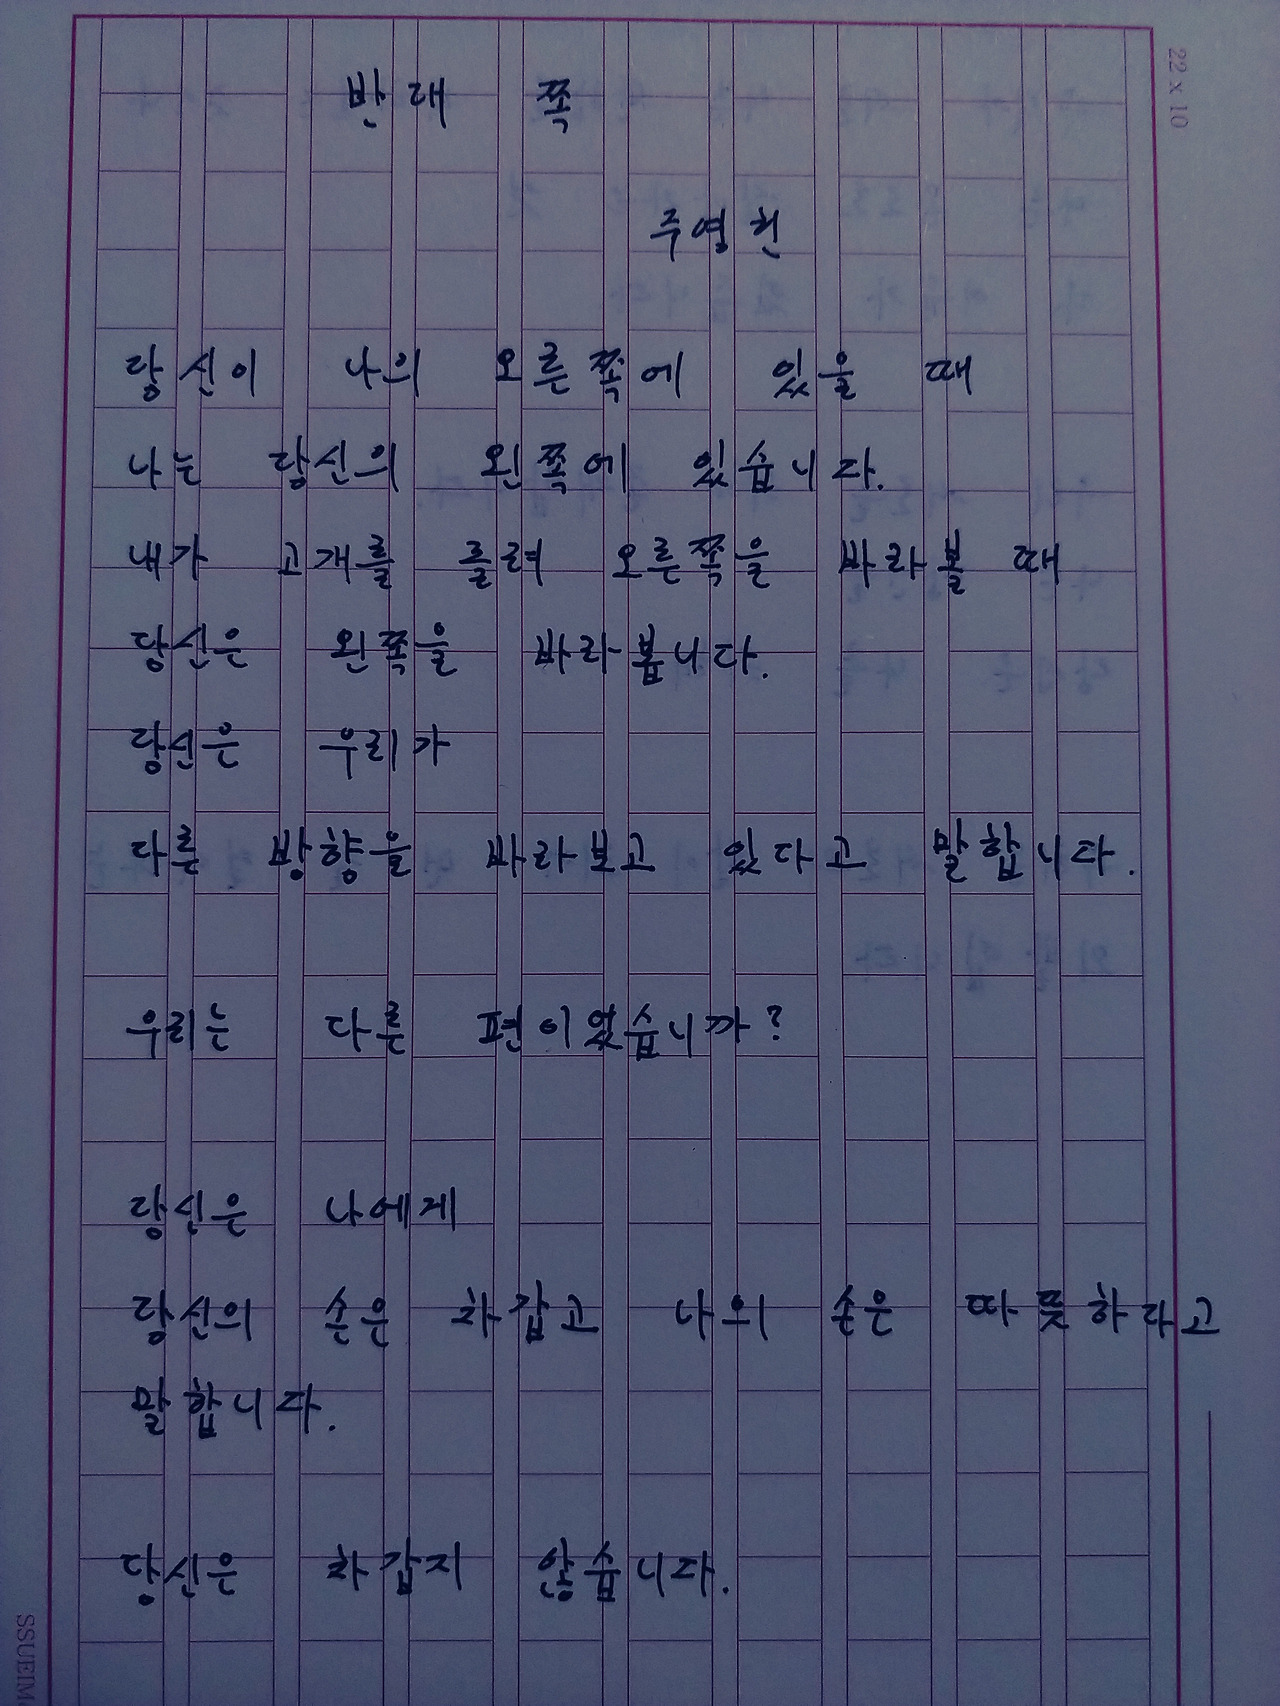 반대 쪽
주영헌
당신이 나의 오른쪽에 있을 때
나는 당신의 왼쪽에 있습니다.
내가 고개를 돌려 오른쪽을 바라볼 때
당신은 왼쪽을 바라봅니다.
당신은 우리가
다른 방향을 바라보고 있다고 말합니다.
우리는 다른 편이었습니까?
당신은 나에게
당신의 손은 차갑고 나의 손은 따뜻하다고
말합니다.
당신은 차갑지 않습니다.
22 x 10